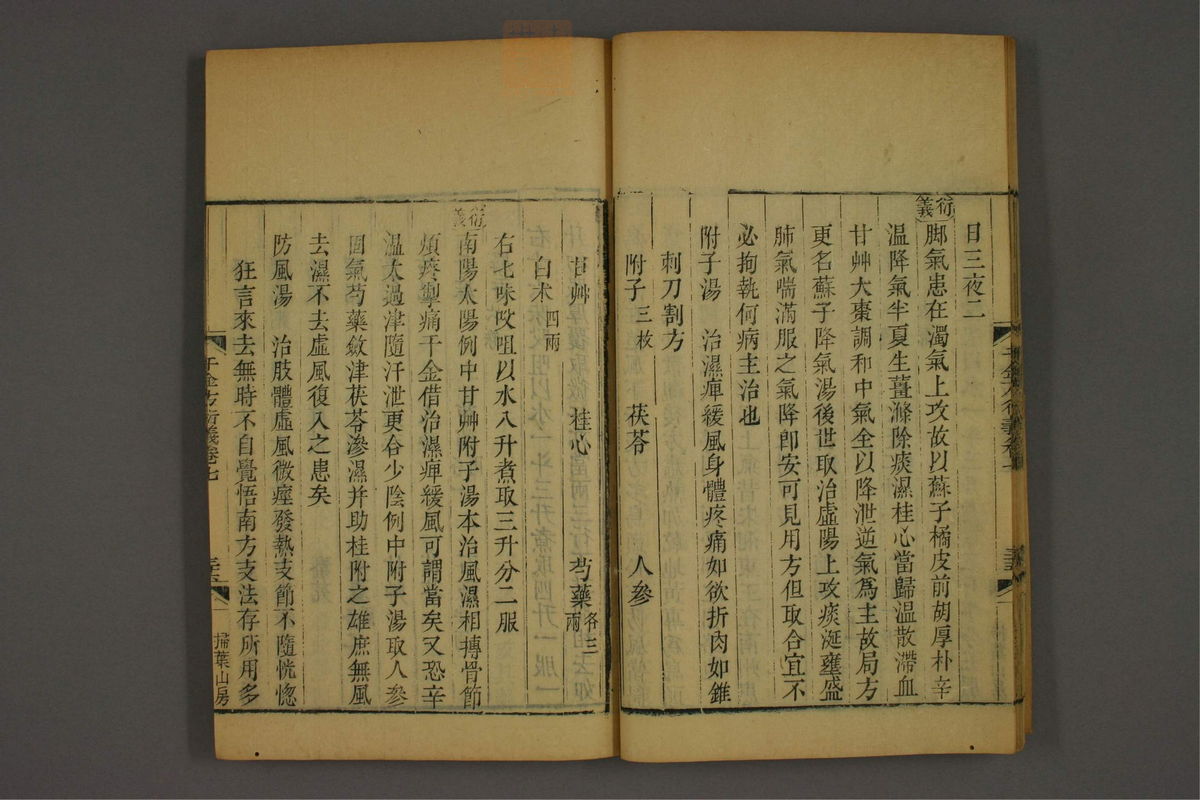 日三夜二
衍義
脚氣患在濁氣上攻故以蘇子橘皮前胡厚朴辛
温降氣半夏生薑滌除痰濕桂心當歸温散滯血
甘艸大棗調和中氣全以降泄逆氣爲主故局方
更名蘇子降氣湯後世取治虛陽上攻痰涎壅盛
肺氣喘滿服之氣降卽安可見用方但取合宜不
必拘執何病主治也
附子湯 治濕痺緩風身體疼痛如欲折肉如錐
刺刀割方
附子三枚 茯苓 人參
甘艸 桂心 芍藥各三兩
白朮四兩
右七味㕮咀以水八升煮取三升分二服
衍義
南陽太陽例中甘艸附子湯本治風濕相搏骨節
煩疼掣痛千金借治濕痺緩風可謂當矣又恐辛
温太過津隨汗泄更合少陰例中附子湯取人參
固氣芍藥斂津茯苓滲濕并助桂附之雄庶無風
去濕不去虛風復入之患矣
防風湯 治肢體虛風微痙發熱支節不隨恍惚
狂言來去無時不自覺悟南方支法存所用多
千金方衍義卷七
掃葉山房